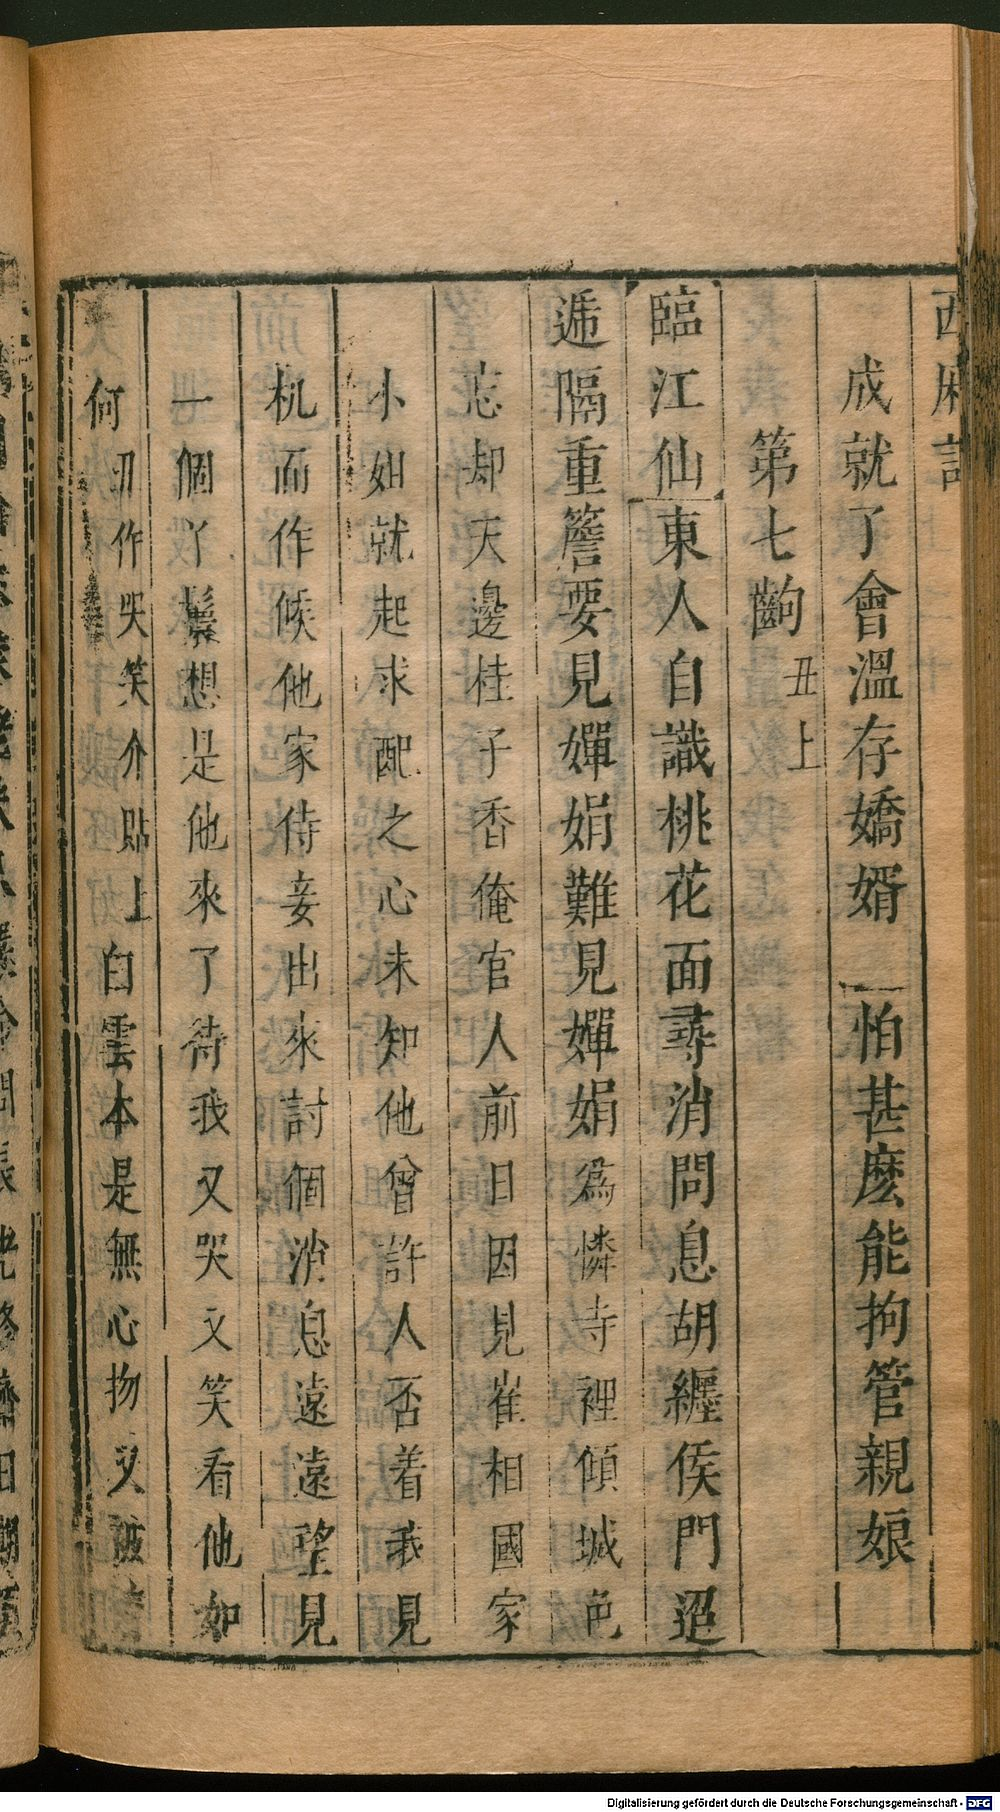 西廂記
成就了會溫存嬌婿 怕甚麼能拘管親娘
第七齣 丑上
臨江仙 東人自識桃花面尋消問息胡纏侯門迢
遞隔重簷要見嬋娟難見嬋娟為憐寺裡傾城色
忘却天邊桂子香俺官人前日因見崔相國家
小姐就起求配之心未知他曾許人否着我見
机而作候他家侍妾出來討個消息遠遠望見
一個丫鬟想是他來了待我又哭又笑看他如
何 丑作哭笑介貼上 白雲本是無心物又被
Digitalisierung gefördert durch die Deutsche Forschungsgemeinschaft - DFG